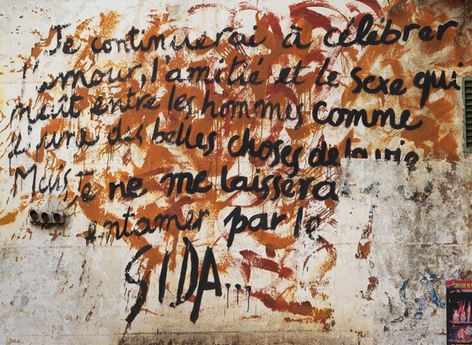 Je continuerai à célébrer
l'amour, l'amitié et le sexe qui
naît entre les hommes comme
l'une des belles choses de la vie
Mais Je ne me laissera
entamer par le
SIDA...